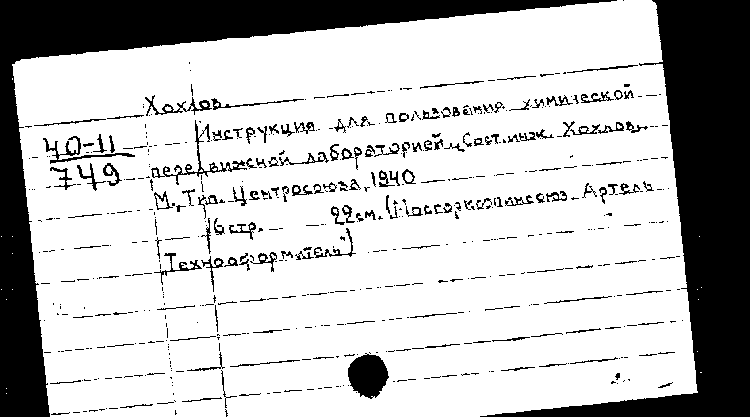 Хохлов.
40-11
749
Инструкция для пользования химической
передвижной лабораторией. Сост. инж. Хохлов.
М., Тип. Центросоюза, 1940
16 стр. 22 см. (Мосгоркоопинсоюз Артель
"Технооформитель")